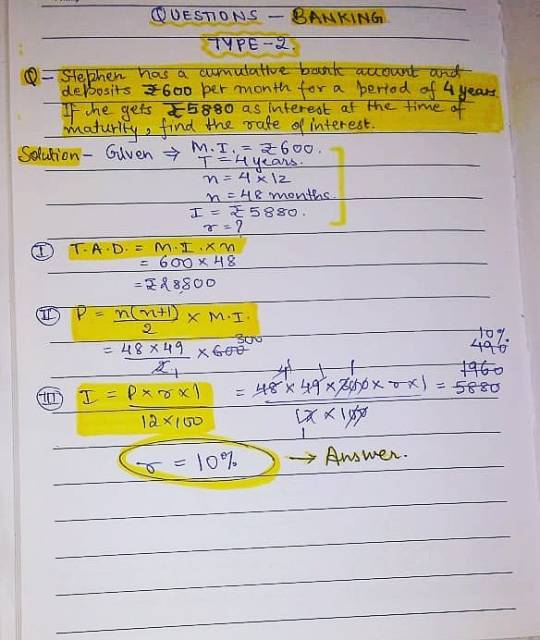 QUESTIONS - BANKING
TYPE-2
Q - Stephen has a cumulative bank account and
deposits ₹600 per month for a period of 4 years
If he gets ₹5880 as interest at the time of
maturity, find the rate of interest.
Solution - Given ⇒ M.I. = ₹600.
T = 4 years.
n = 4 × 12
n = 48 months
I = ₹5880.
r = ?
I T.A.D. = M.I. × n
= 600 × 48
= ₹28800
II P = n(n+1)/2 × M.I.
= 48 × 49/2 × 600 300
10%
490
1960
III I = P × r × 1/12 × 100 = 48 × 49 × 300 × r × 1/12 × 100 = 5880
r = 10% → Answer.